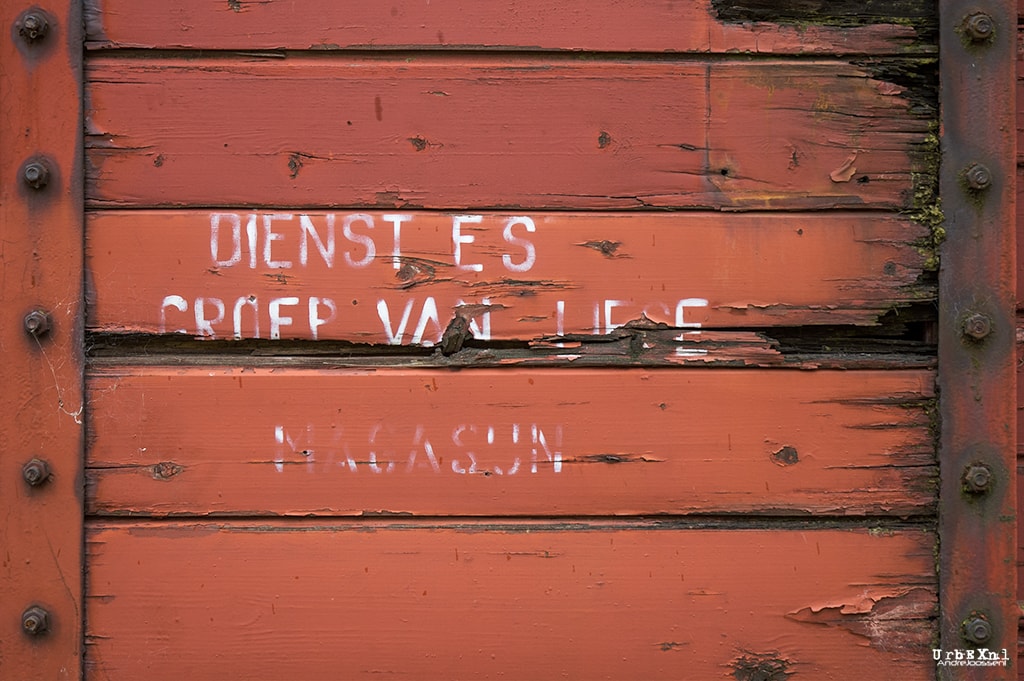 DIENST ES
GROEP VAN LIEGE
MAGASIJN
UrbEXnl
AndreJoossenl